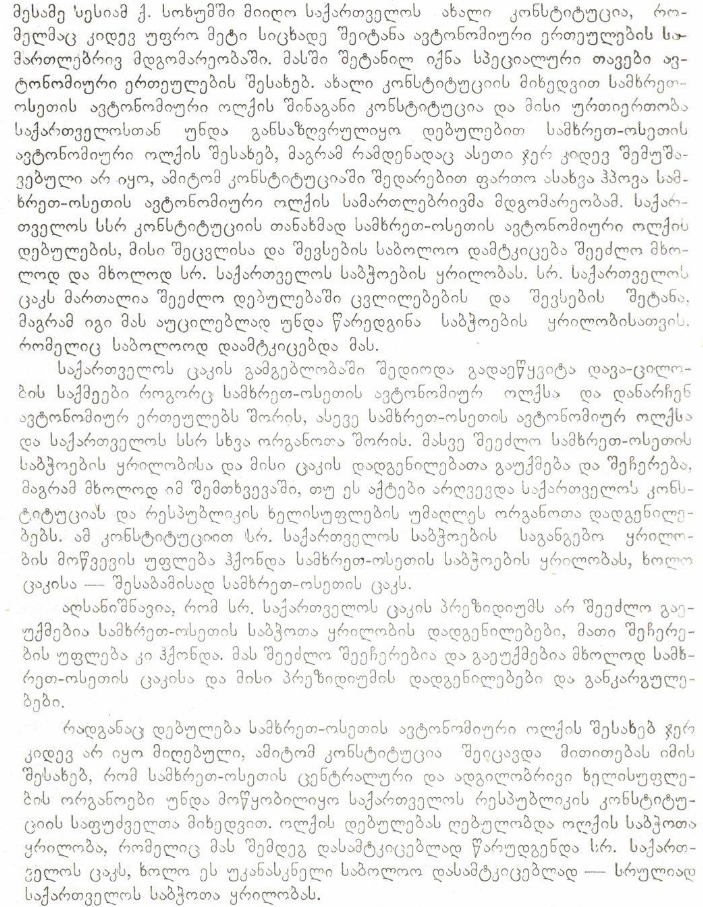 მესამე სესიამ ქ. სოხუმში მიიღო საქართველოს ახალი კონსტიტუცია, რო-
მელმაც კიდევ უფრო მეტი სიცხადე შეიტანა ავტონომიური ერთეულების სა-
მართლებრივ მდგომარეობაში. მასში შეტანილ იქნა სპეციალური თავები ავ-
ტონომიური ერთეულების შესახებ. ახალი კონსტიტუციის მიხედვით სამხრეთ-
ოსეთის ავტონომიური ოლქის შინაგანი კონსტიტუცია და მისი ურთიერთობა
საქართველოსთან უნდა განსაზღვრულიყო დებულებით სამხრეთ-ოსეთის
ავტონომიური ოლქის შესახებ, მაგრამ რამდენადაც ასეთი ჯერ კიდევ შემუშა-
ვებული არ იყო, ამიტომ კონსტიტუციაში შედარებით ფართო ასახვა ჰპოვა სამ-
ხრეთ-ოსეთის ავტონომიური ოლქის სამართლებრივმა მდგომარეობამ. საქარ-
თველოს სსრ კონსტიტუციის თანახმად სამხრეთ-ოსეთის ავტონომიური ოლქის
დებულების, მისი შეცვლისა და შევსების საბოლოო დამტკიცება შეეძლო მხო-
ლოდ და მხოლოდ სრ. საქართველოს საბჭოების ყრილობას. სრ. საქართველოს
ცაკს მართალია შეეძლო დებულებაში ცვლილებების და შევსების შეტანა,
მაგრამ იგი მას აუცილებლად უნდა წარედგინა საბჭოების ყრილობისათვის.
რომელიც საბოლოოდ დაამტკიცებდა მას.
საქართველოს ცაკის გამგებლობაში შედიოდა გადაეწყვიტა დავა-ცილო-
ბის საქმეები როგორც სამხრეთ-ოსეთის ავტონომიურ ოლქსა და დანარჩენ
ავტონომიურ ერთეულებს შორის, ასევე სამხრეთ-ოსეთის ავტონომიურ ოლქსა
და საქართველოს სსრ სხვა ორგანოთა შორის. მასვე შეეძლო სამხრეთ-ოსეთის
საბჭოების ყრილობისა და მისი ცაკის დადგენილებათა გაუქმება და შეჩერება,
მაგრამ მხოლოდ იმ შემთხვევაში, თუ ეს აქტები არღვევდა საქართველოს კონს-
ტიტუციას და რესპუბლიკის ხელისუფლების უმაღლეს ორგანოთა დადგენილე-
ბებს. ამ კონსტიტუციით სრ. საქართველოს საბჭოების საგანგებო ყრილო-
ბის მოწვევის უფლება ჰქონდა სამხრეთ-ოსეთის საბჭოების ყრილობას, ხოლო
ცაკისა — შესაბამისად სამხრეთ-ოსეთის ცაკს.
აღსანიშნავია, რომ სრ. საქართველოს ცაკის პრეზიდიუმს არ შეეძლო გაე-
უქმებია სამხრეთ-ოსეთის საბჭოთა ყრილობის დადგენილებები, მათი შეჩერე-
ბის უფლება კი ჰქონდა. მას შეეძლო შეეჩერებია და გაეუქმებია მხოლოდ სამხ-
რეთ-ოსეთის ცაკისა და მისი პრეზიდიუმის დადგენილებები და განკარგულე-
ბები.
რადგანაც დებულება სამხრეთ-ოსეთის ავტონომიური ოლქის შესახებ ჯერ
კიდევ არ იყო მიღებული, ამიტომ კონსტიტუცია შეიცავდა მითითებას იმის
შესახებ, რომ სამხრეთ-ოსეთის ცენტრალური და ადგილობრივი ხელისუფლე-
ბის ორგანოები უნდა მოწყობილიყო საქართველოს რესპუბლიკის კონსტიტუ-
ციის საფუძველთა მიხედვით. ოლქის დებულებას ღებულობდა ოლქის საბჭოთა
ყრილობა, რომელიც მას შემდეგ დასამტკიცებლად წარუდგენდა სრ. საქართ-
ველოს ცაკს, ხოლო ეს უკანასკნელი საბოლოო დასამტკიცებლად — სრულიად
საქართველოს საბჭოთა ყრილობას.